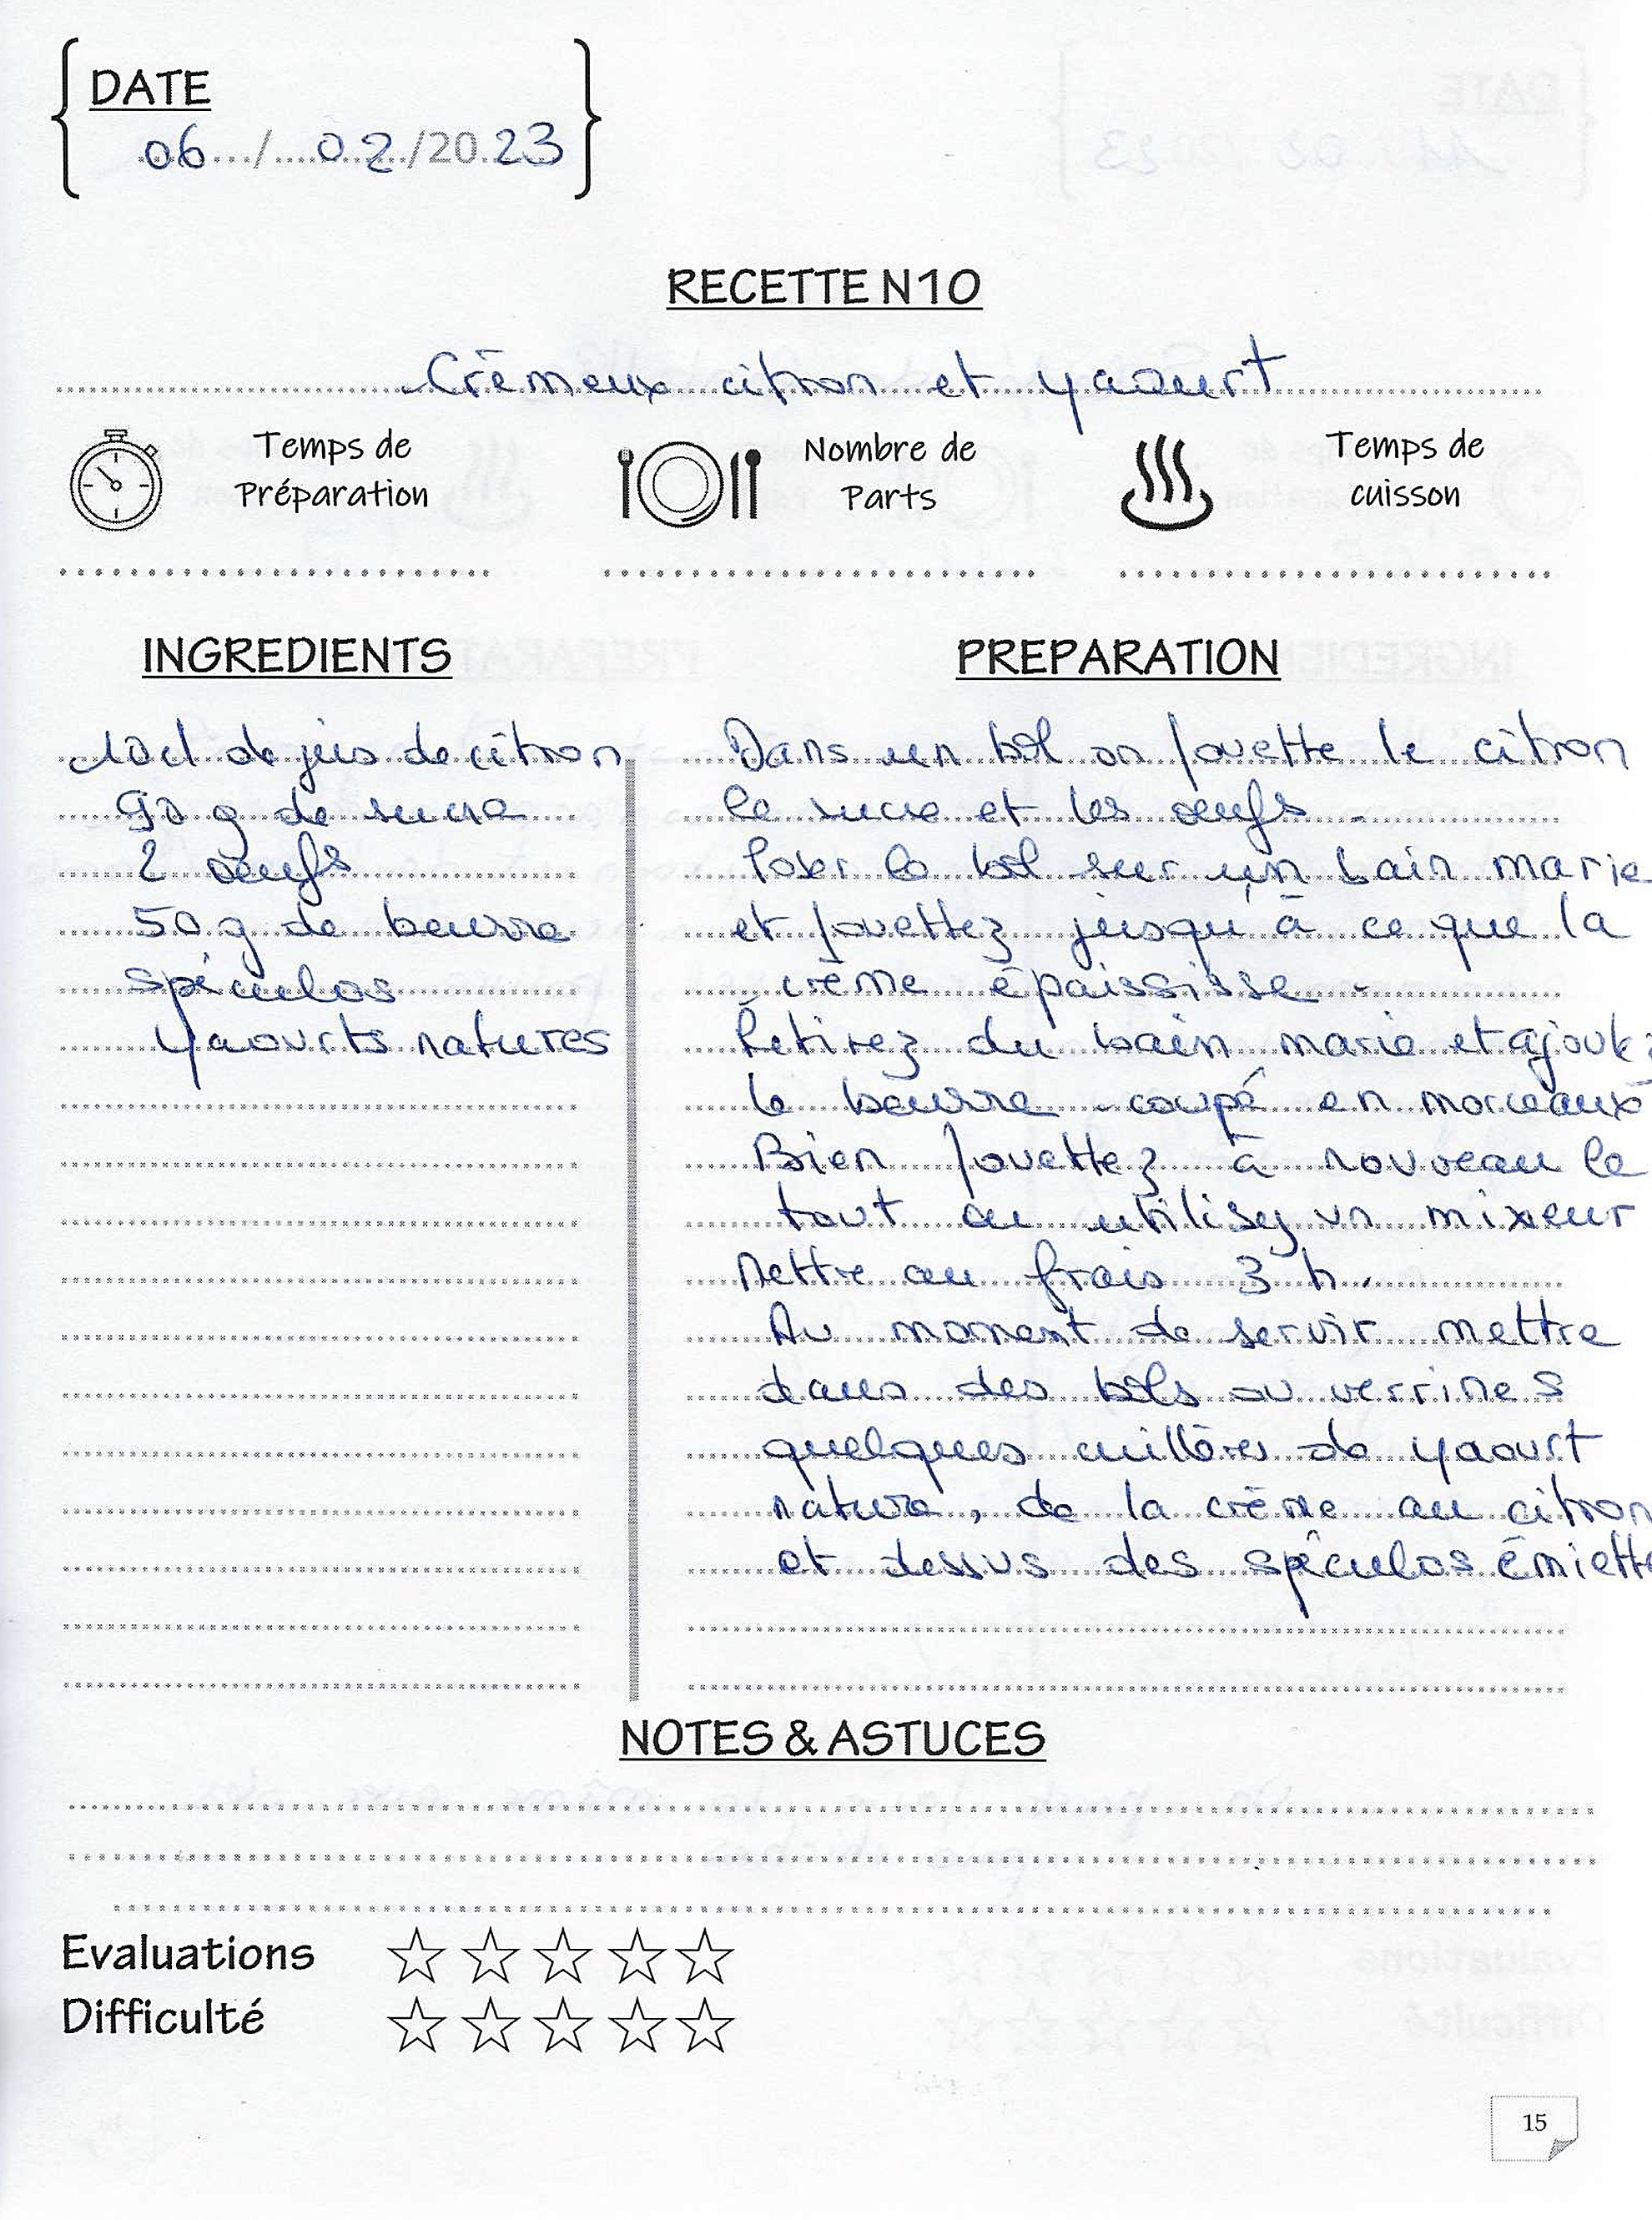 DATE
06 / 02 /2023
RECETTE N10
Crèmeux citron et yaourt
Temps de Préparation
Nombre de Parts
Temps de cuisson
INGREDIENTS
10cl de jus de citron
90 g de sucre
2 oeufs
50 g de beurre
spéculos
yaourts natures
PREPARATION
Dans un bol on fouette le citron
le sucre et les oeufs.
Poser le bol sur un bain marie
et fouettez jusqu'à ce que la
crème épaississe.
Retirez du bain marie et ajoutez
le beurre coupé en morceaux
Bien fouettez à nouveau le
tout ou utilisez un mixeur
Mettre au frais 3 h.
Au moment de servir mettre
dans des bols ou verrines
quelques cuillères de yaourt
nature, de la crème au citron
et dessus des spéculos émiette
NOTES & ASTUCES
Evaluations
Difficulté
15